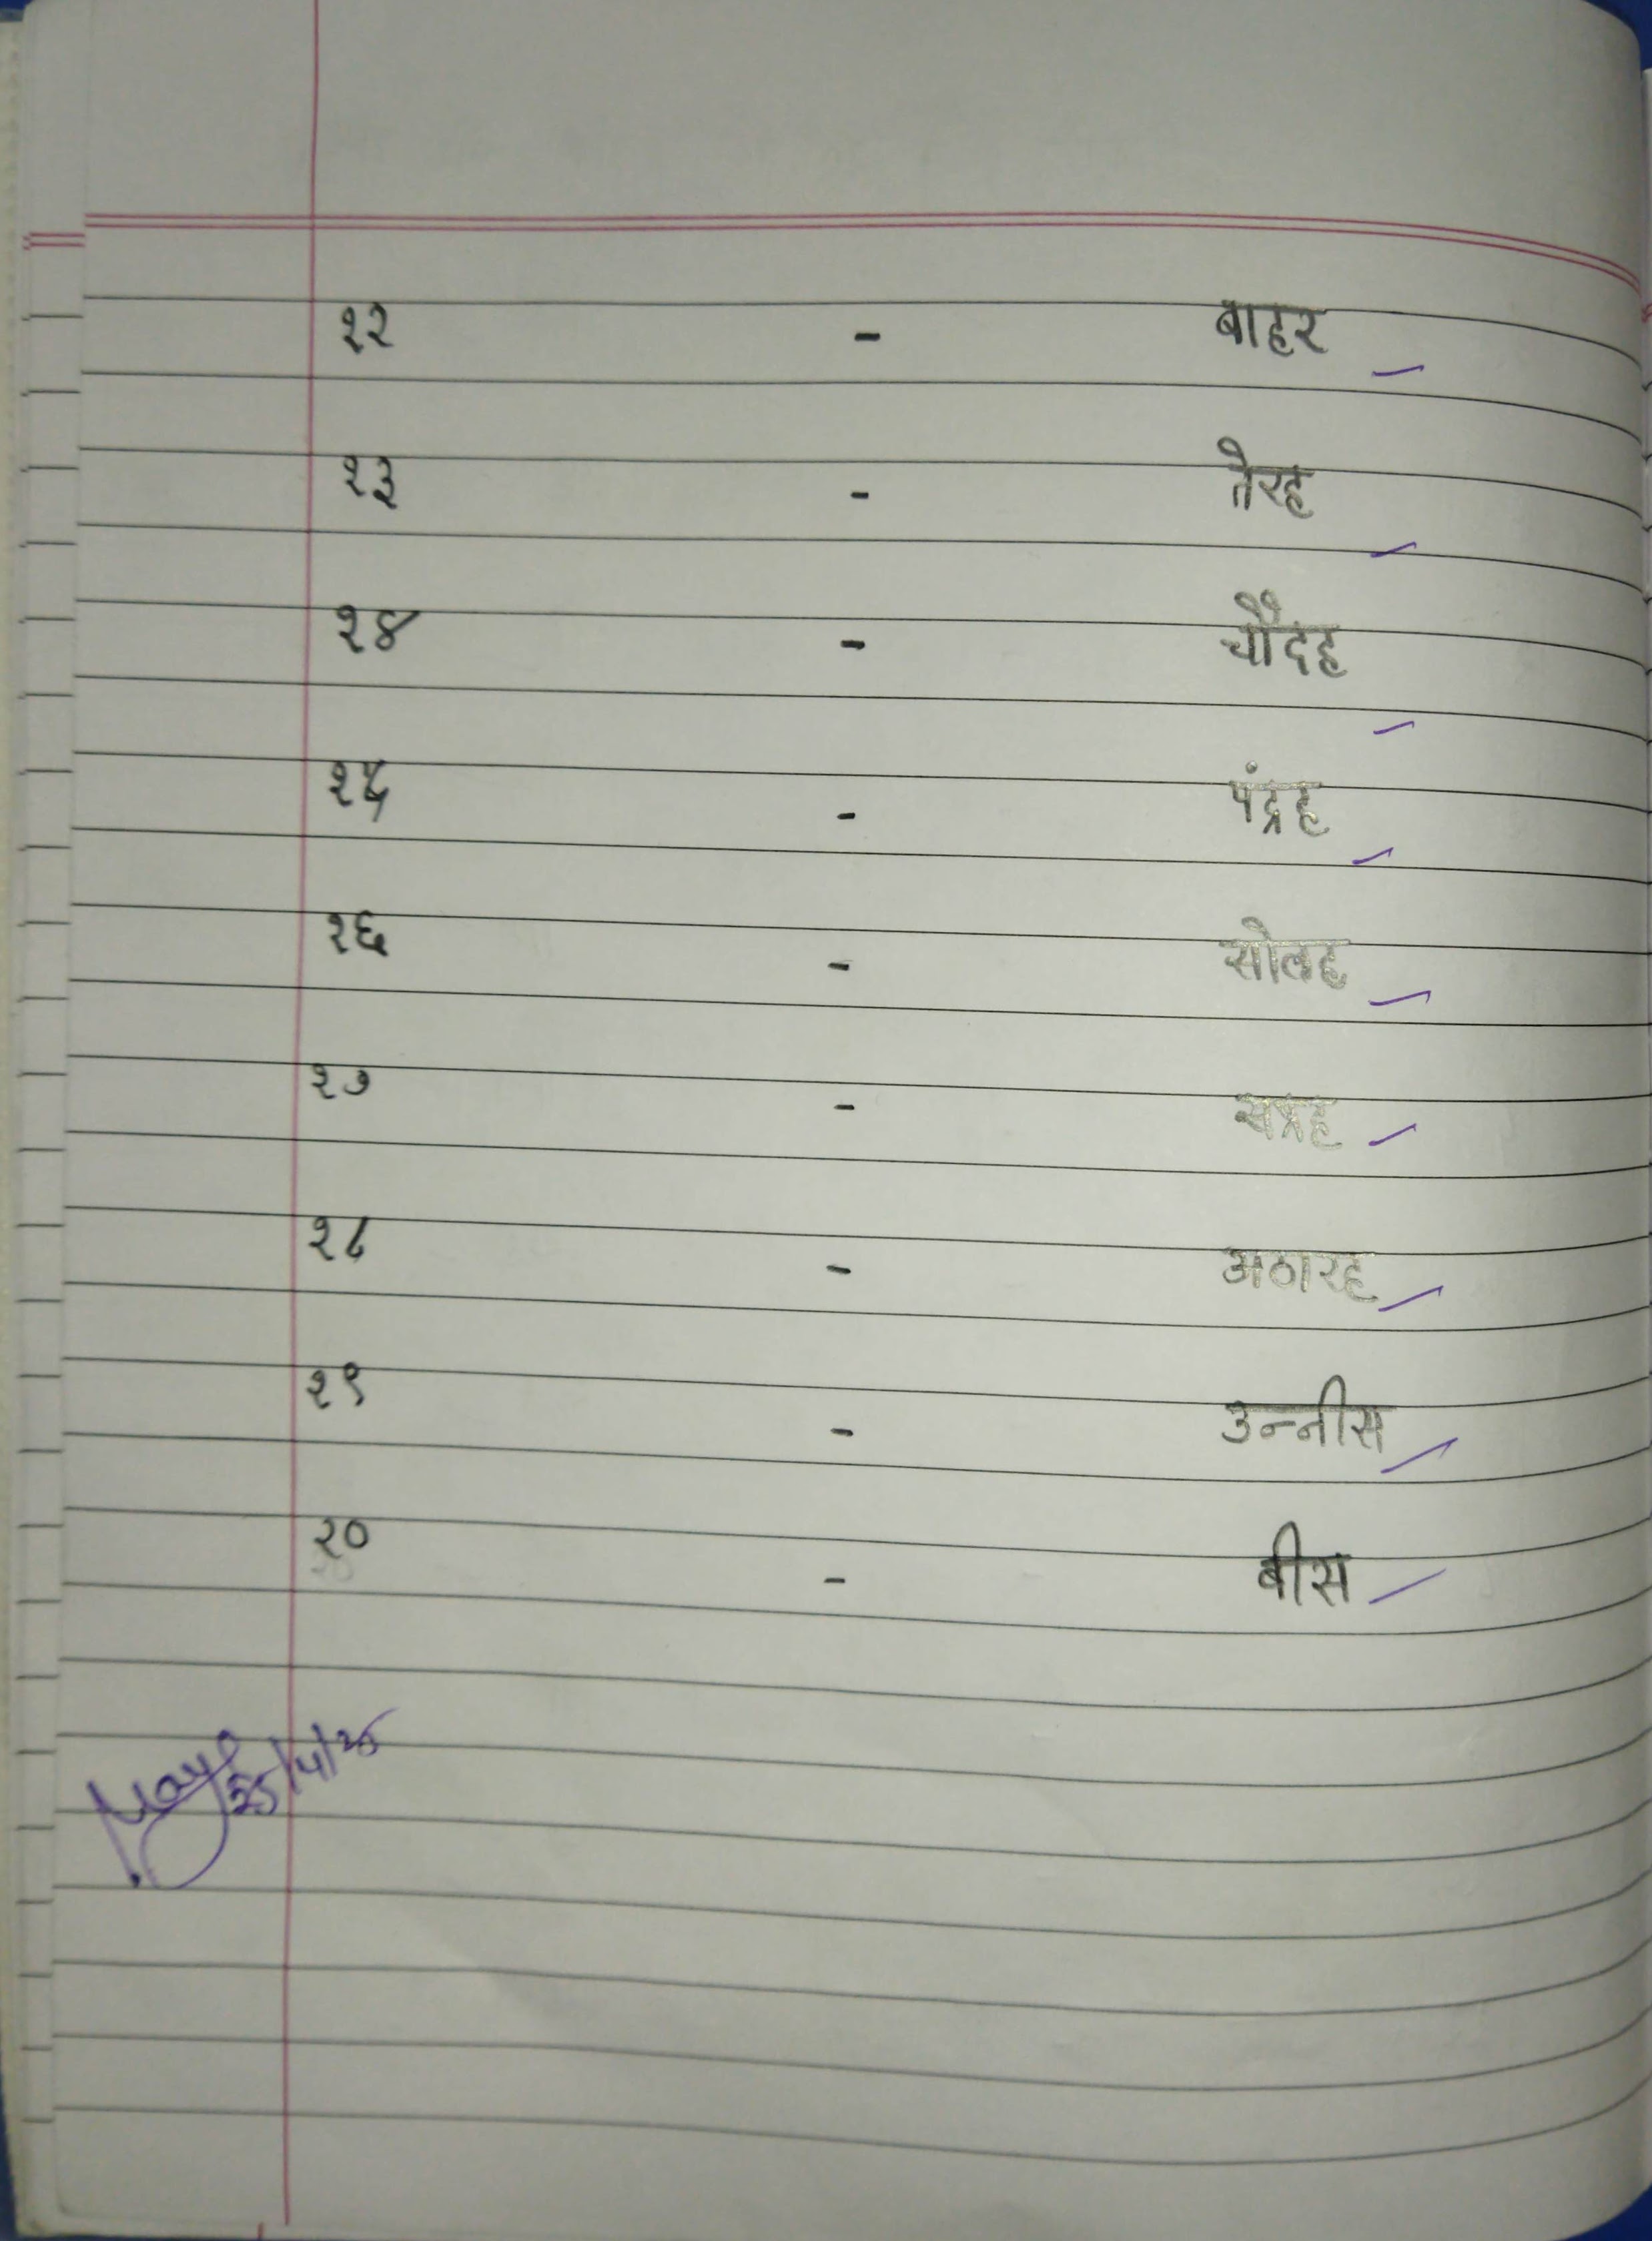 १२ - बाहर
१३ - तेरह
१४ - चौदह
१५ - पंद्रह
१६ - सोलह
१७ - सत्रह
१८ - अठारह
१९ - उन्नीस
२० - बीस
25/4/25